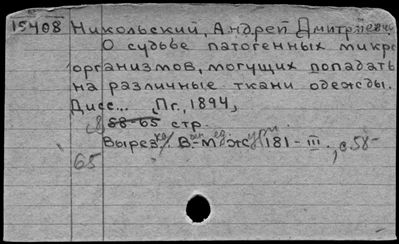 15408 Никольский, Андрей Дмитриевич
О судьбе патогенных микро-
организмов, могущих попадать
на различные ткани одежды.
Дисс... Пг., 1894,
с 58-65 стр.
Вырезка/. В.-м. ж. 181-III., с 58-
65